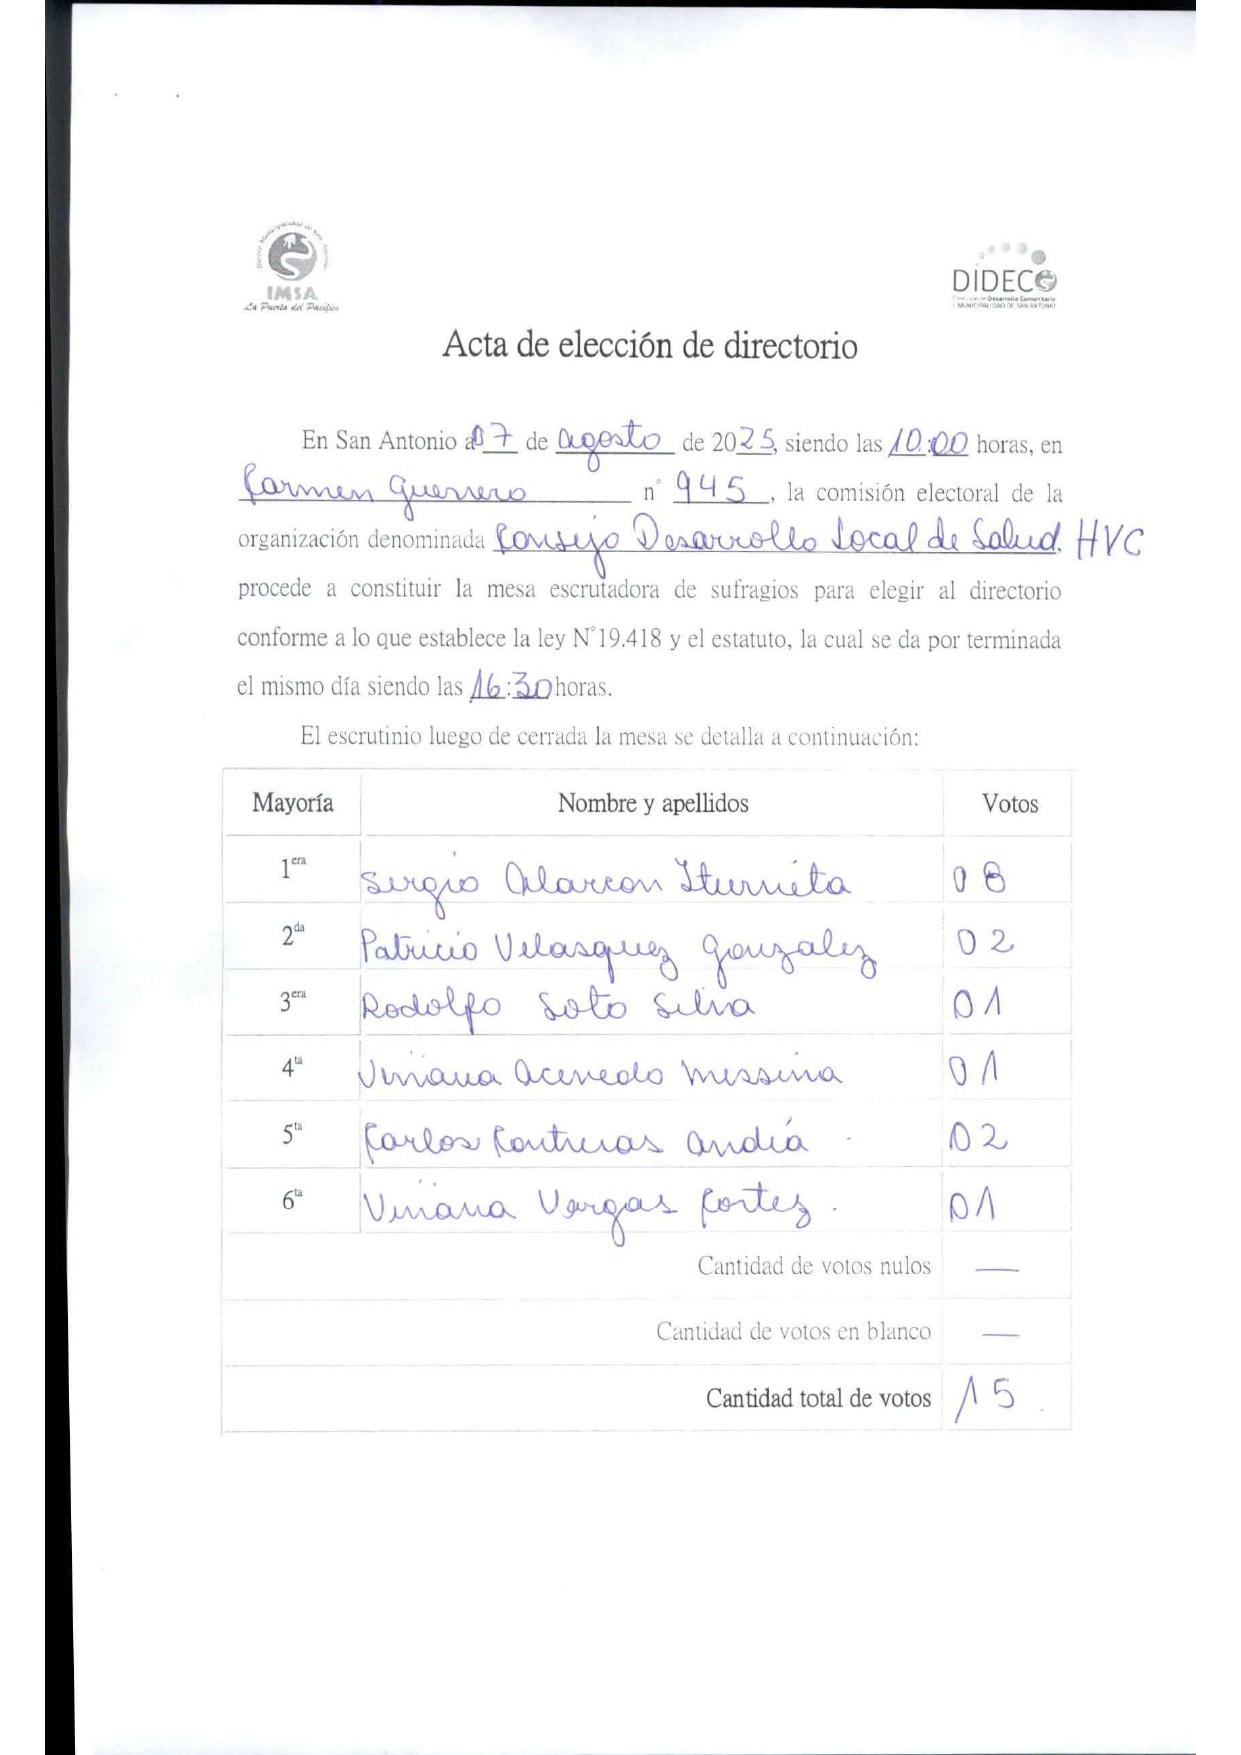 Ilustre Municipalidad de San Antonio
IMSA
La Puerta del Pacífico
DIDECO
Dirección de Desarrollo Comunitario
I. MUNICIPALIDAD DE SAN ANTONIO
Acta de elección de directorio
En San Antonio a 07 de Agosto de 2025, siendo las 10:00 horas, en
Carmen Guerrero n° 945, la comisión electoral de la
organización denominada Consejo Desarrollo Local de Salud. HVC
procede a constituir la mesa escrutadora de sufragios para elegir al directorio
conforme a lo que establece la ley N°19.418 y el estatuto, la cual se da por terminada
el mismo día siendo las 16:30 horas.
El escrutinio luego de cerrada la mesa se detalla a continuación:
Mayoría Nombre y apellidos Votos
1era Sergio Alarcon Iturrieta 08
2da Patricio Velasquez Gonzalez 02
3era Rodolfo Soto Silva 01
4ta Viviana Acevedo Messina 01
5ta Carlos Contreras Andía 02
6ta Viviana Vargas Cortez. 01
Cantidad de votos nulos —
Cantidad de votos en blanco —
Cantidad total de votos 15